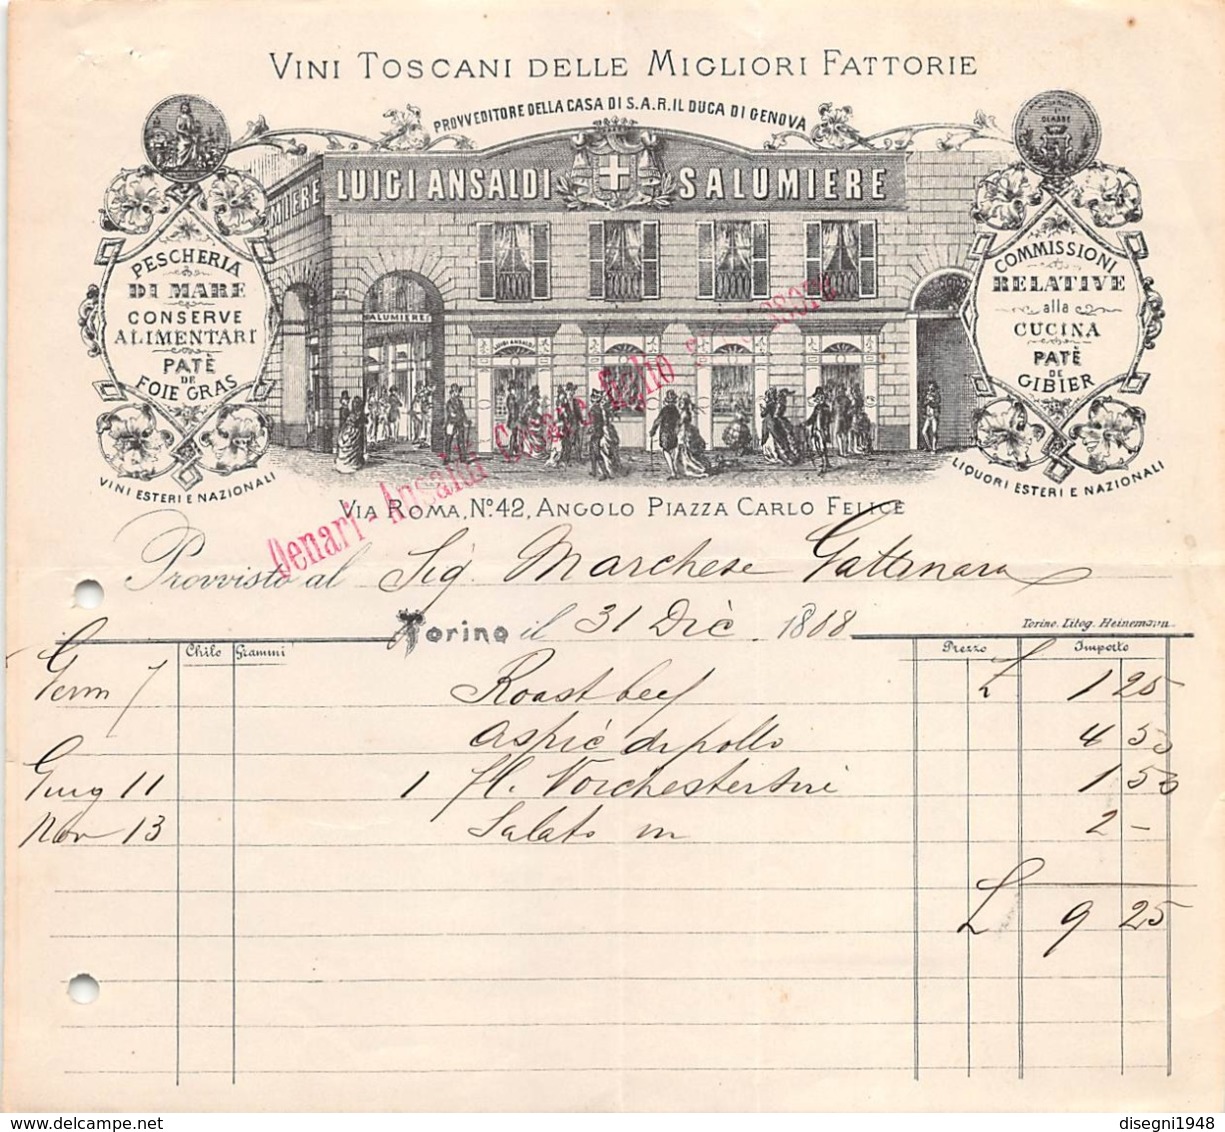 VINI TOSCANI DELLE MIGLIORI FATTORIE
PROVVEDITORE DELLA CASA DI S.A.R. IL DUCA DI GENOVA
MIERE
LUIGI ANSALDI SALUMIERE
PESCHERIA
DI MARE
CONSERVE
ALIMENTARI
PATÈ
DE
FOIE GRAS
VINI ESTERI E NAZIONALI
SALUMIERE
LUIGI ANSALDI
COMMISSIONI
RELATIVE
alla
CUCINA
PATÈ
DE
GIBIER
LIQUORI ESTERI E NAZIONALI
Denari - Ansaldi Cesare figlio successore
VIA ROMA, Nº 42, ANGOLO PIAZZA CARLO FELICE
Provvisto al Sig. Marchese Gattinara
Torino il 31 Dic. 1888
Torino. Litog. Heinemann
Chilo Grammi Prezzo Importo
7 Roast beef L 1 25
aspic di pollo 4 50
Giug 11 1 fl. 1 50
Nov 13 Salato in 2 -
L 9 25
disegni1948